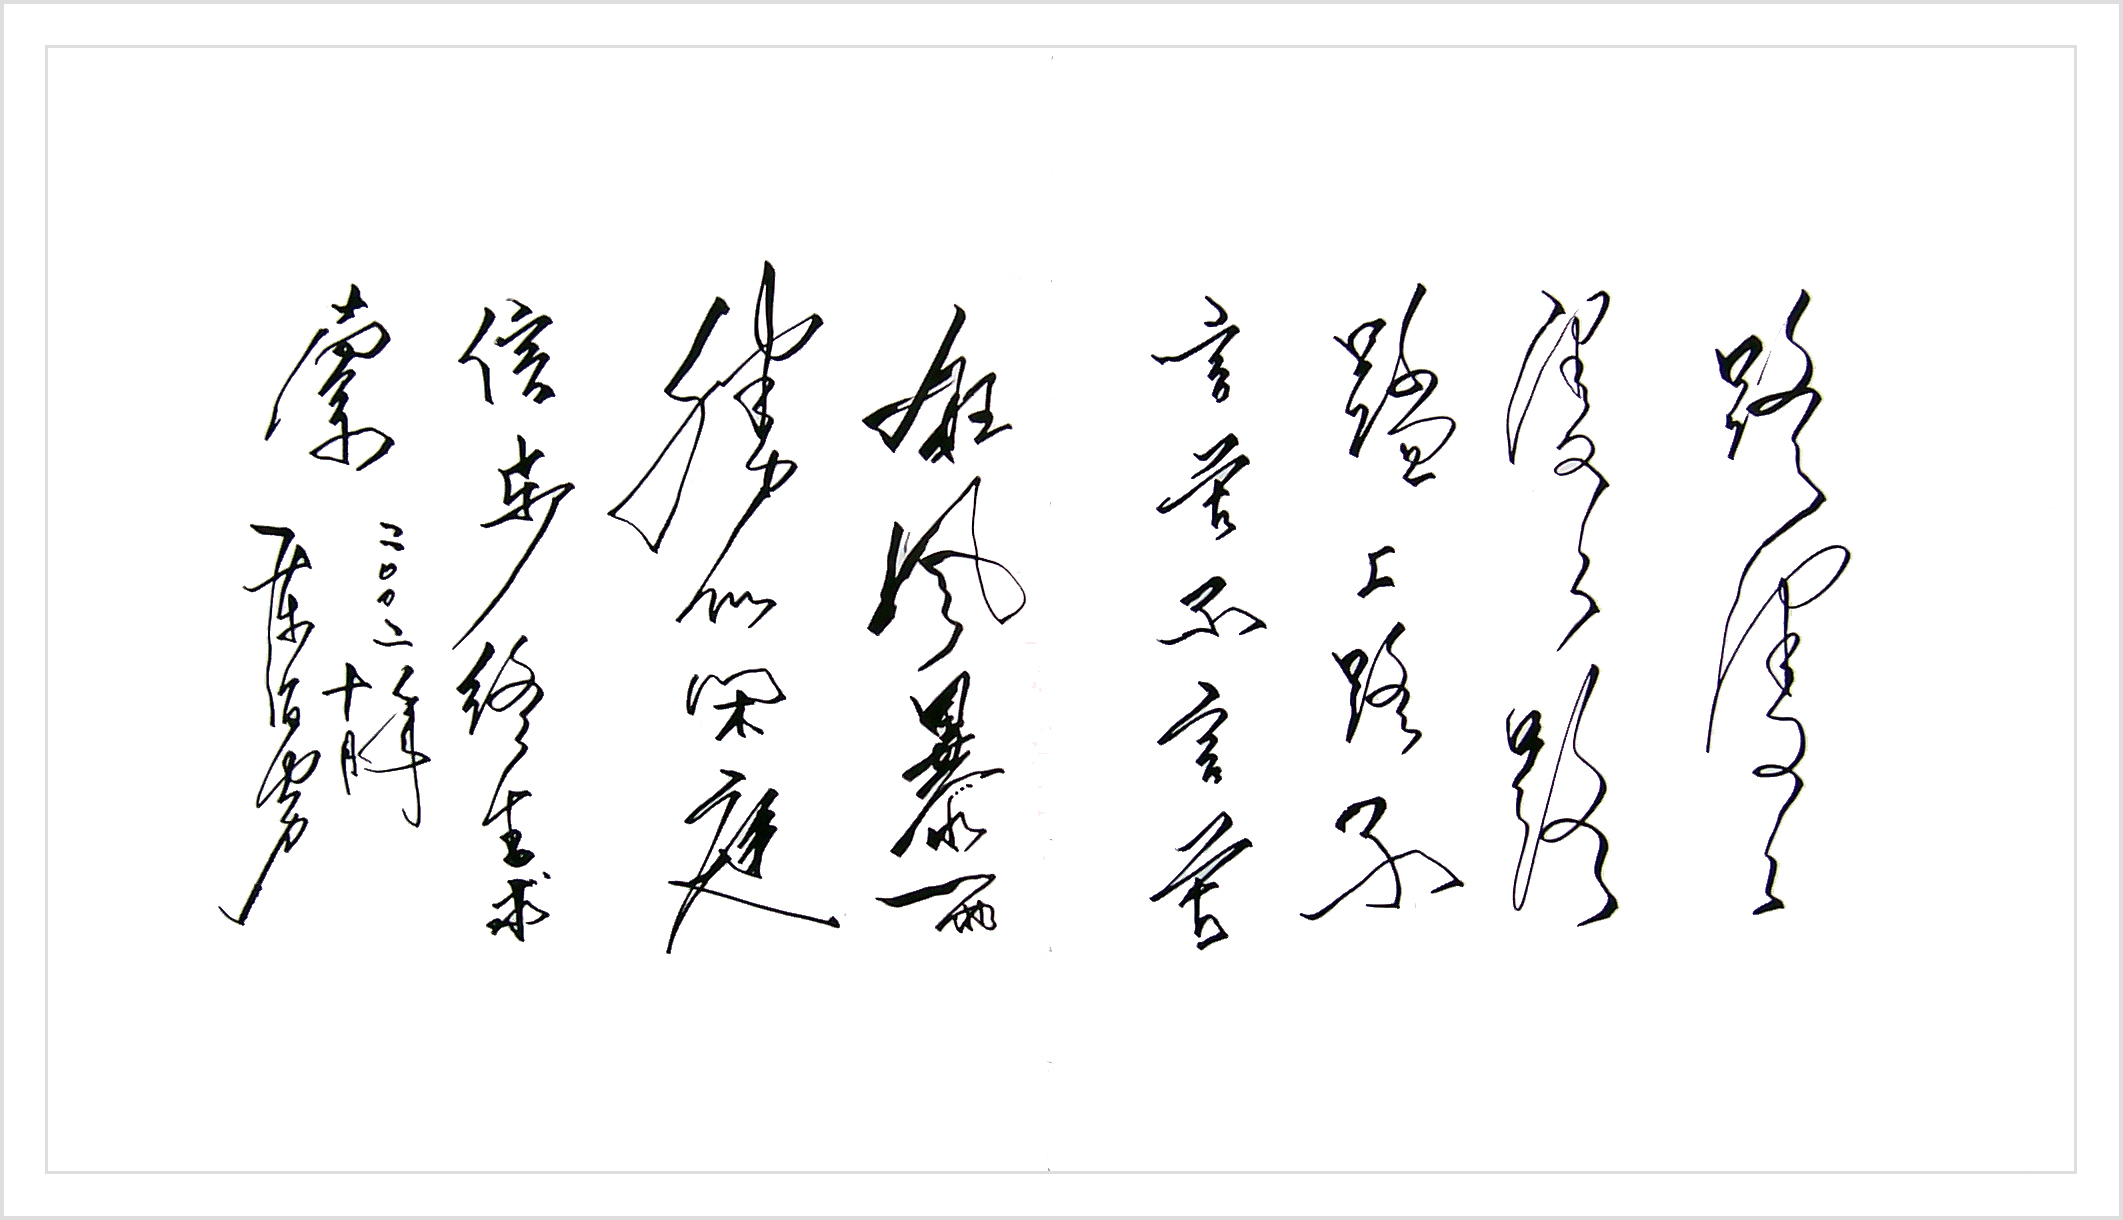 路漫々
漫々路
踏上路不
言苦不言苦
狂风暴雨
勝似闲庭
信步终生求
索
二〇〇二年
十月